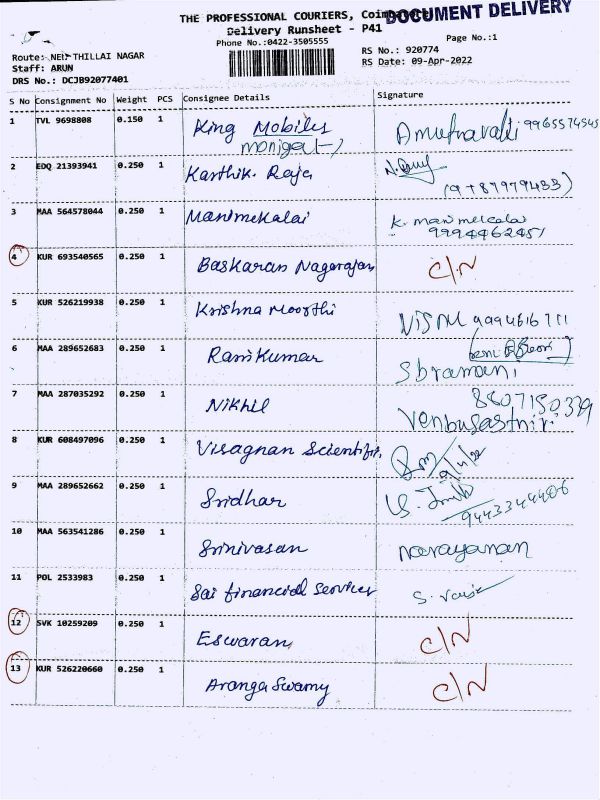 DOCUMENT DELIVERY
THE PROFESSIONAL COURIERS,
Delivery Runsheet - P41
Phone No.:0422-3505555
Page No.:1
Route: THILLAI NAGAR
RS No.: 920774
Staff: ARUN
RS Date: 09-Apr-2022
DRS No.: DCJB92077401
S No Consignment No Weight PCS Consignee Details Signature
1 TVL 9698808 0.150 1 King Mobiles
2 EDQ 21393941 0.250 1 Karthik. Raja
3 MAA 564578044 0.250 1 Manimekalai K. manimekalai
9994462451
4 KUR 693540565 0.250 1 Baskaran Nagarajan C/N
5 KUR 526219938 0.250 1 Krishna Moorthi
6 MAA 289652683 0.250 1 RamKumar Sbramani
7 MAA 287035292 0.250 1 Nikhil
8 KUR 608497096 0.250 1 Visagnan Scientific
9 MAA 289652662 0.250 1 Sridhar
9443344406
10 MAA 563541286 0.250 1 Srinivasan Narayanan
11 POL 2533983 0.250 1 Sai financial Services
12 SVK 10259209 0.250 1 Eswaran C/N
13 KUR 526220660 0.250 1 Aranga Swamy C/N